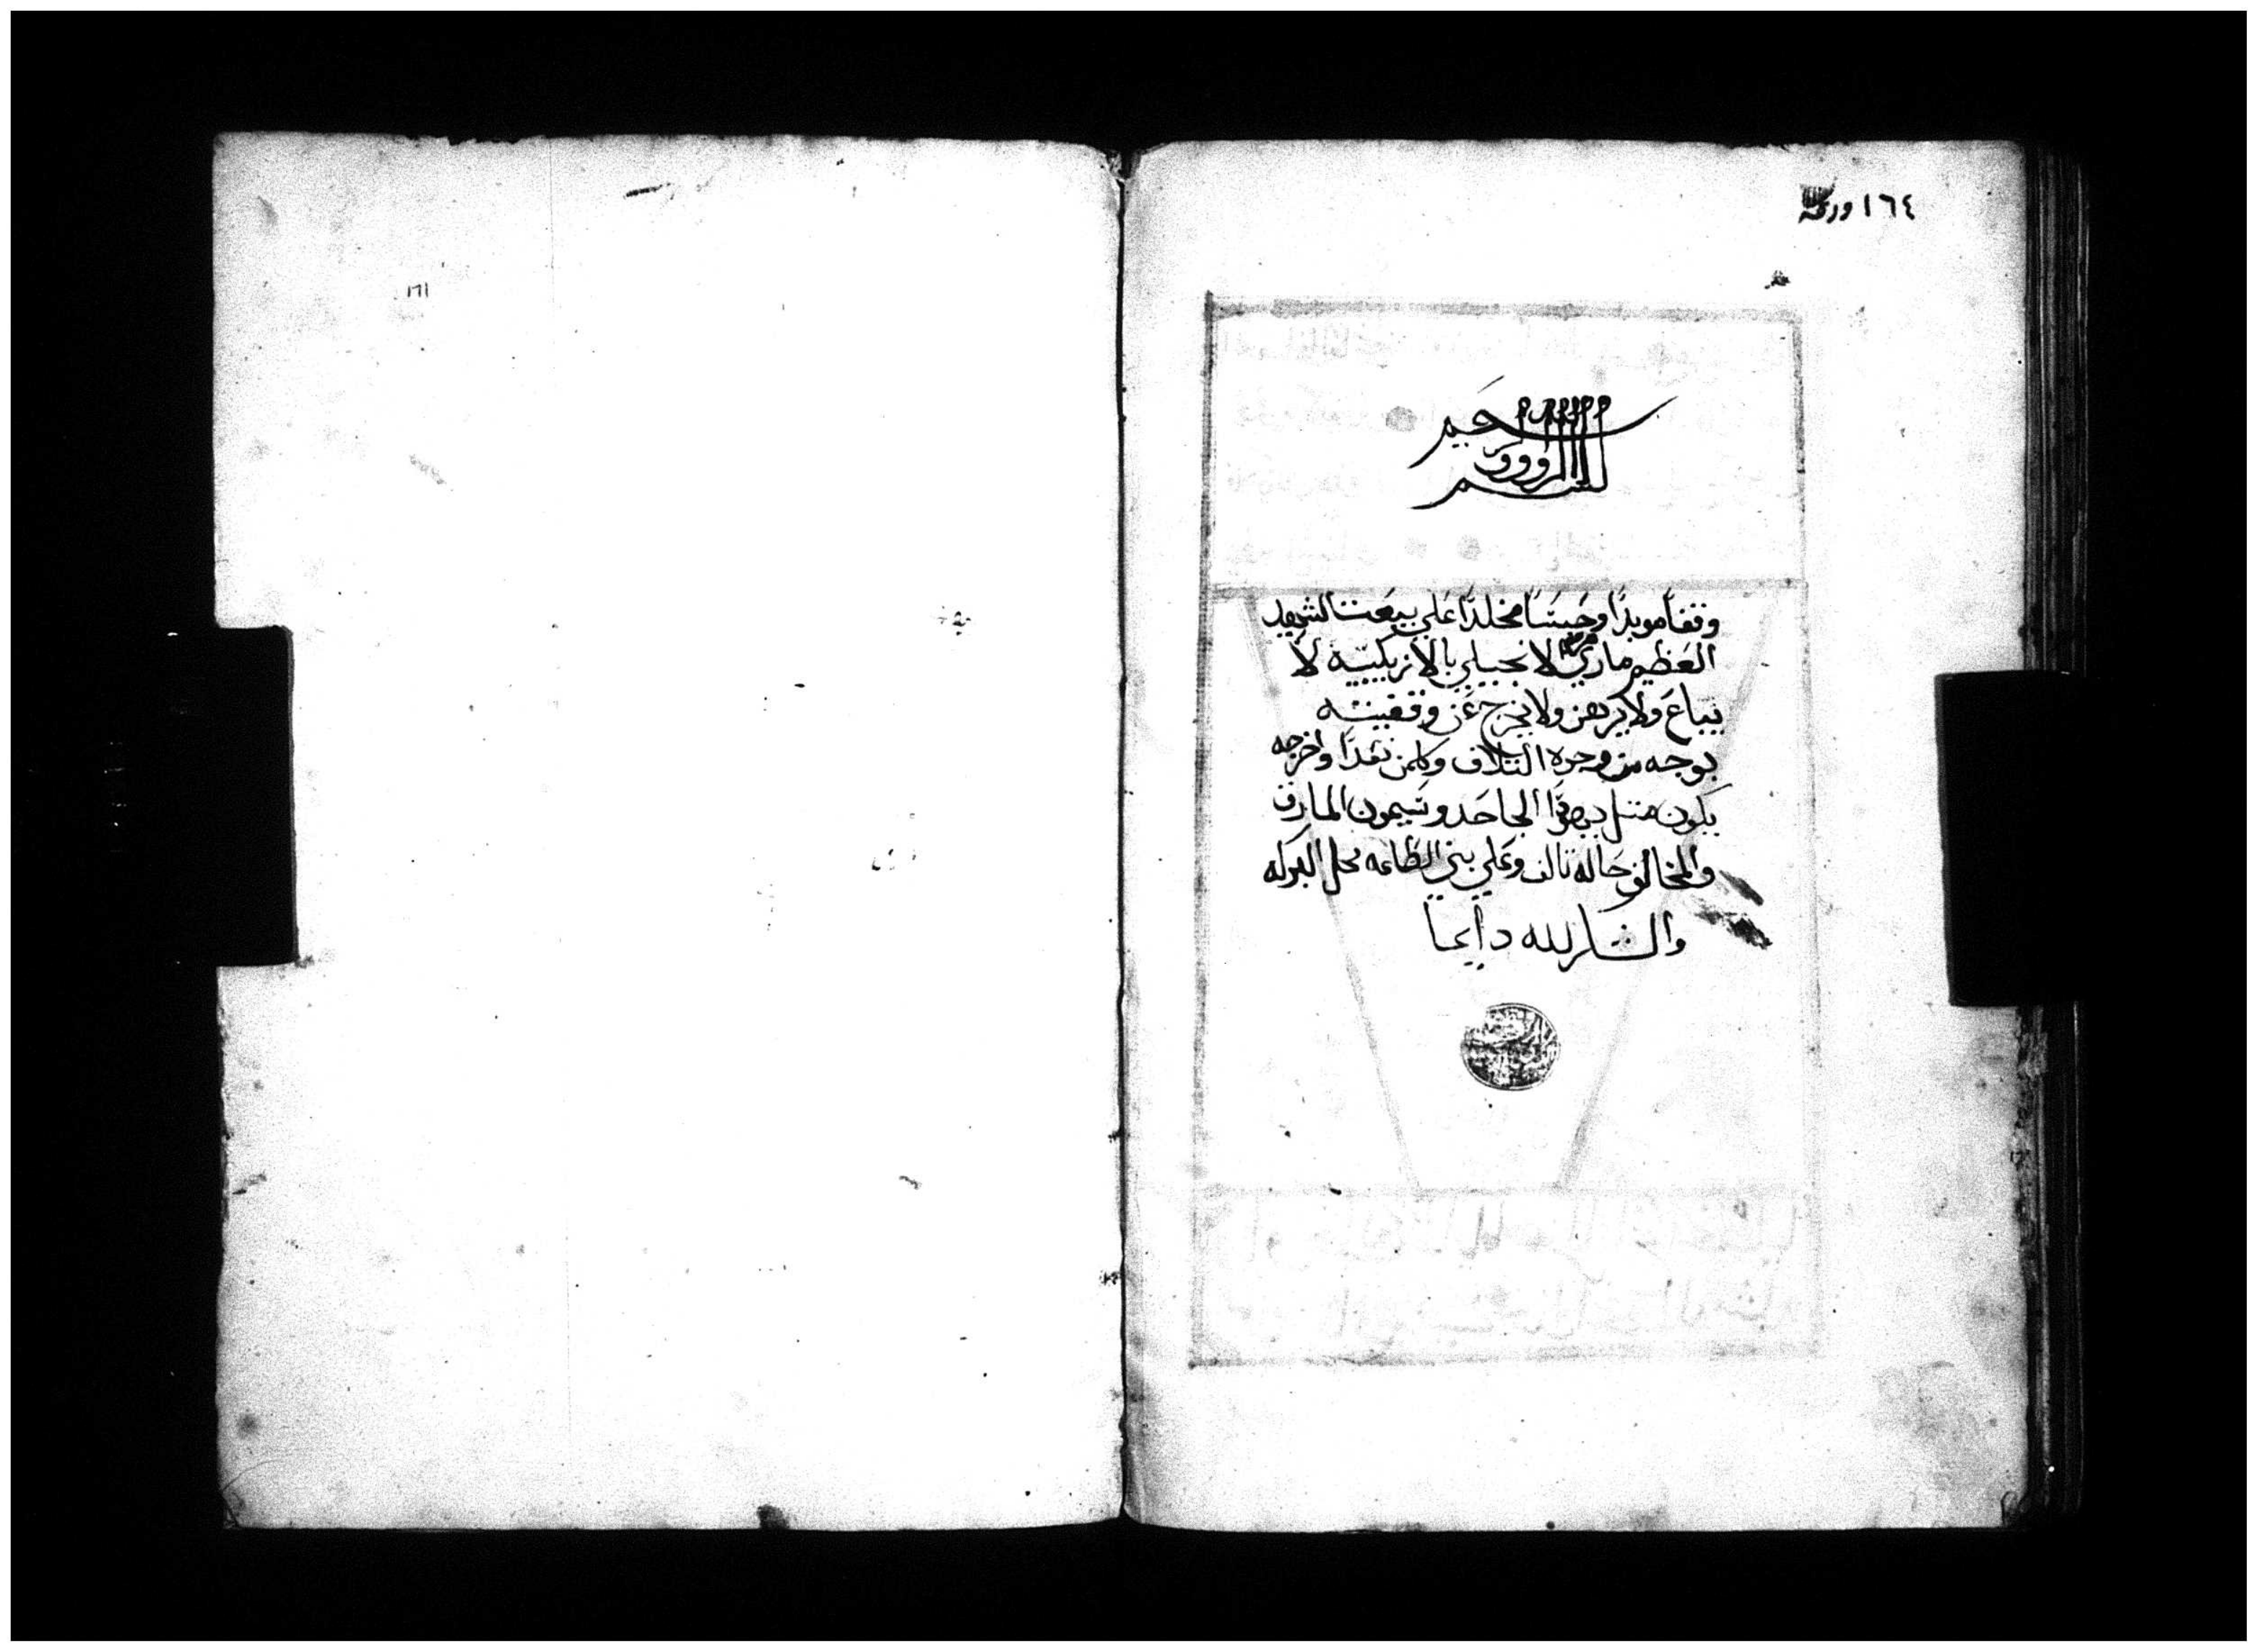 ١٦٤ ورقة
بسم الله الرووف الرحيم
وقفاً موبدًا وحبسًا مخلدًا علي بيعت الشهيد
العظيم ماري مرقس الانجيلي بالازبكية لا
يباع ولا يرهن ولا يخرج عن وقفيته
بوجه من وجوه التلاف وكلمن تعدا واخرجه
يكون متل ديهودا الجاحد وسيمون المارق
والمخالف حاله تالف وعلي بني الطاعه تحل البركه
والشكر لله دايما